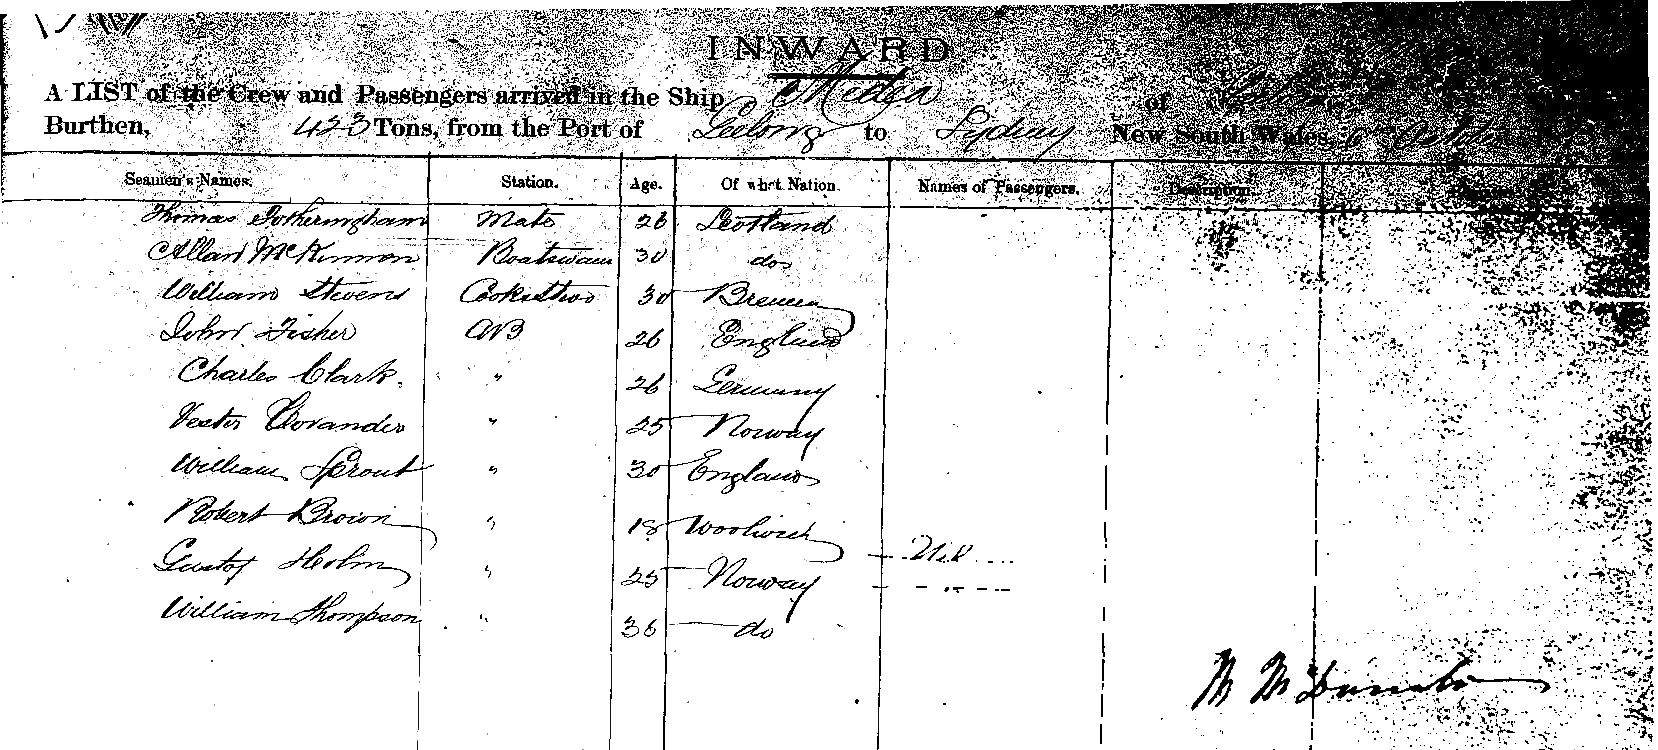 INWARD
A LIST of the Crew and Passengers arrived in the Ship Medea of
Burthen, 423 Tons, from the Port of Geelong to Sydney New South Wales,
Seamen's Names. Station. Age. Of what Nation. Names of Passengers. Description.
Thomas Fotheringham Mate 26 Scotland
Allan McKinnon Boatswain 30 do
William Stevens 30 Bremen
John Fisher AB 26 England
Charles Clark. " 26 Germany
" 25 Norway
William Sprout " 30 England
Robert Brown " 18 Woolwich
Gustof Holm " 25 Norway Nil
William Thompson " 36 do